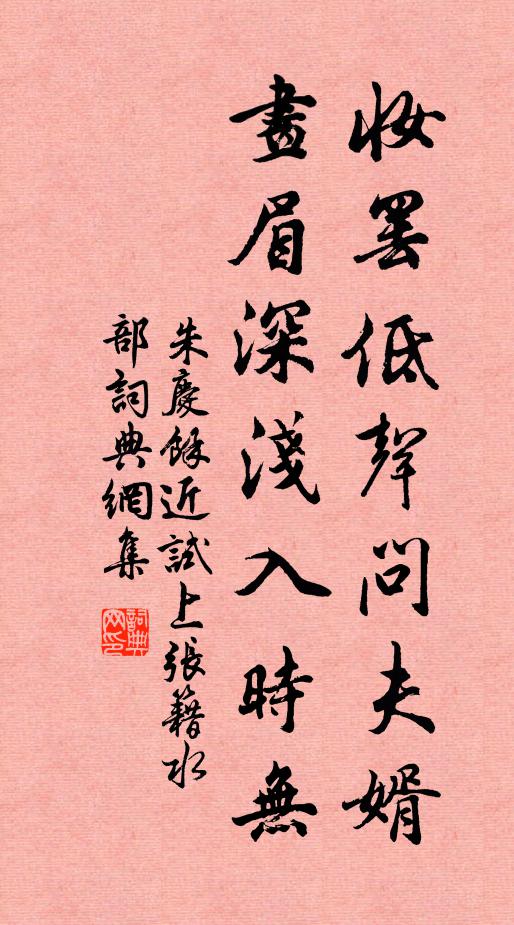 妝罷低聲問夫婿
畫眉深淺入時無
朱慶餘近試上張籍水
部詞典網集
詞典网印